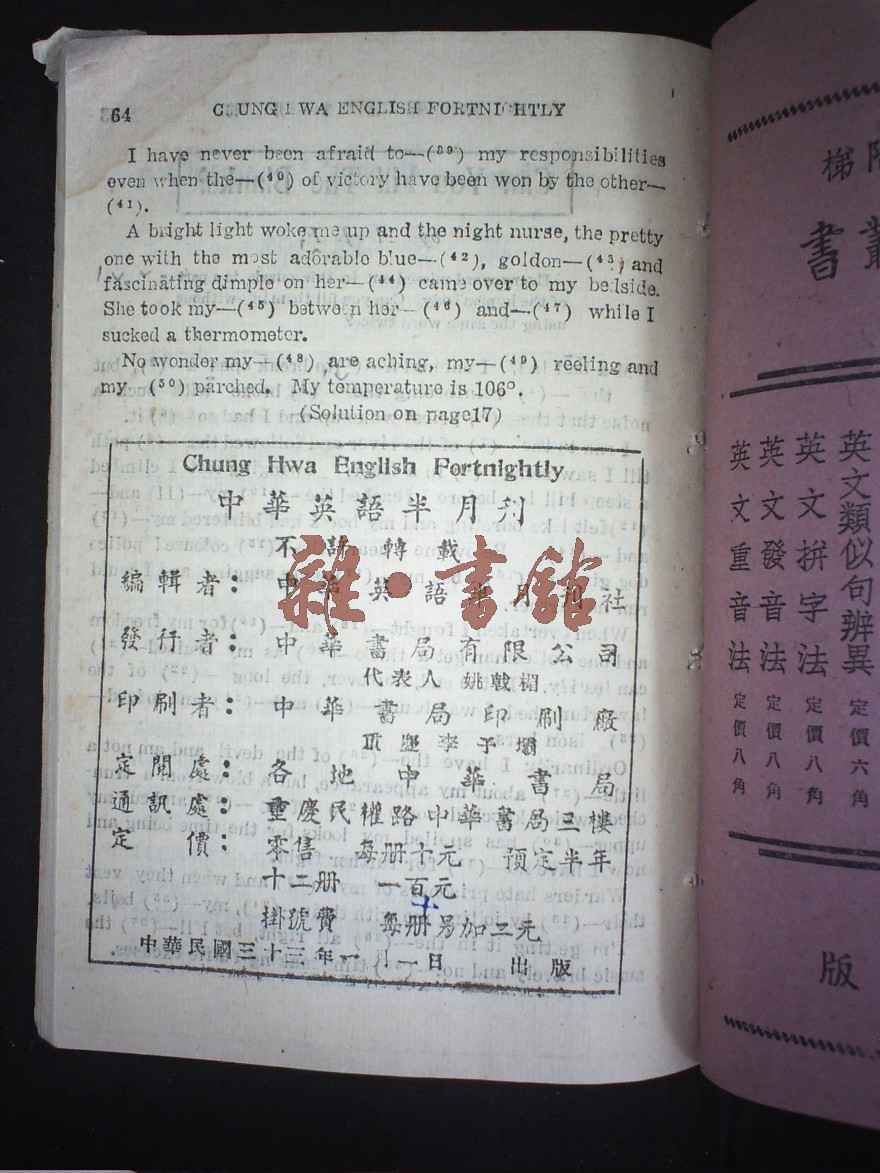 64 CHUNG HWA ENGLISH FORTNIGHTLY
I have never been afraid to—(³⁹) my responsibilities
even when the—(⁴⁰) of victory have been won by the other—
(⁴¹).
A bright light woke me up and the night nurse, the pretty
one with the most adorable blue—(⁴²), goldon—(⁴³) and
fascinating dimple on her—(⁴⁴) came over to my bedside.
She took my—(⁴⁵) between her—(⁴⁶) and—(⁴⁷) while I
sucked a thermometer.
No wonder my—(⁴⁸) are aching, my—(⁴⁹) reeling and
my (⁵⁰) parched. My temperature is 106°.
(Solution on page17)
Chung Hwa English Fortnightly
中華英語半月刊
不許轉載
編輯者：中華英語半月刊社
發行者：中華書局有限公司
代表人 姚戟楣
印刷者：中華書局印刷廠
重慶李子壩
定閱處：各地中華書局
通訊處：重慶民權路中華書局三樓
定價：零售 每册十元 預定半年
十二册 一百元
掛號費 每册另加二元
中華民國三十三年一月一日出版
雜·書館
梯
書叢
英文類似句辨異 定價六角
英文拼字法 定價八角
英文發音法 定價八角
英文重音法 定價八角
版